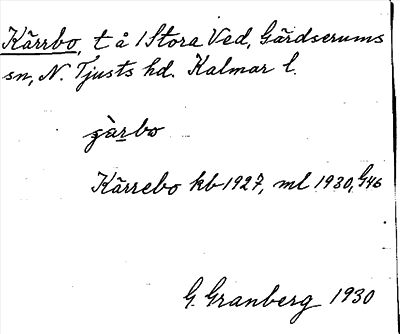 Kärrbo, t å 1 Stora Ved, Gärdserums
sn, N. Tjusts hd. Kalmar l.
Kärrebo kb 1927, ml 1930, G46
G. Granberg 1930